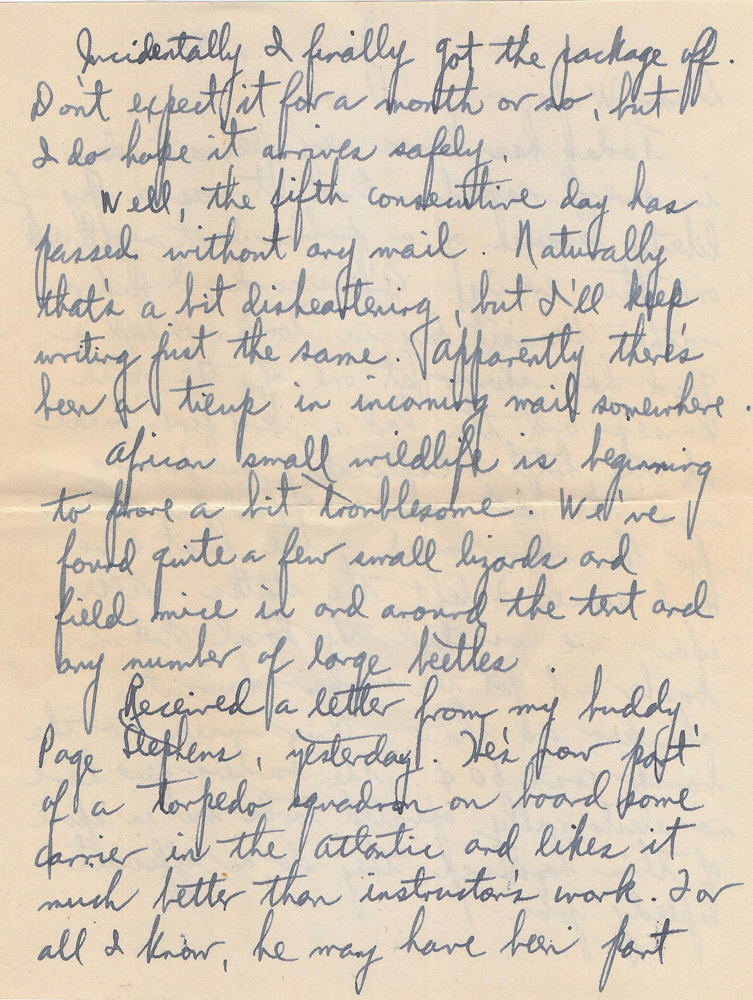 Incidentally I finally got the package off.
Dont expect it for a month or so, but
I do hope it arrives safely.
Well, the fifth consecutive day has
passed without any mail. Naturally
that's a bit disheartening, but I'll keep
writing just the same. Apparently there's
been a tieup in incoming mail somewhere.
African small wildlife is beginning
to prove a bit troublesome. We've
found quite a few small lizards and
field mice in and around the tent and
any number of large beetles
Received a letter from my buddy
Page Stephens, yesterday. He's now part
of a torpedo squadron on board some
carrier in the Atlantic and likes it
much better than instructor's work. For
all I know, he may have been part